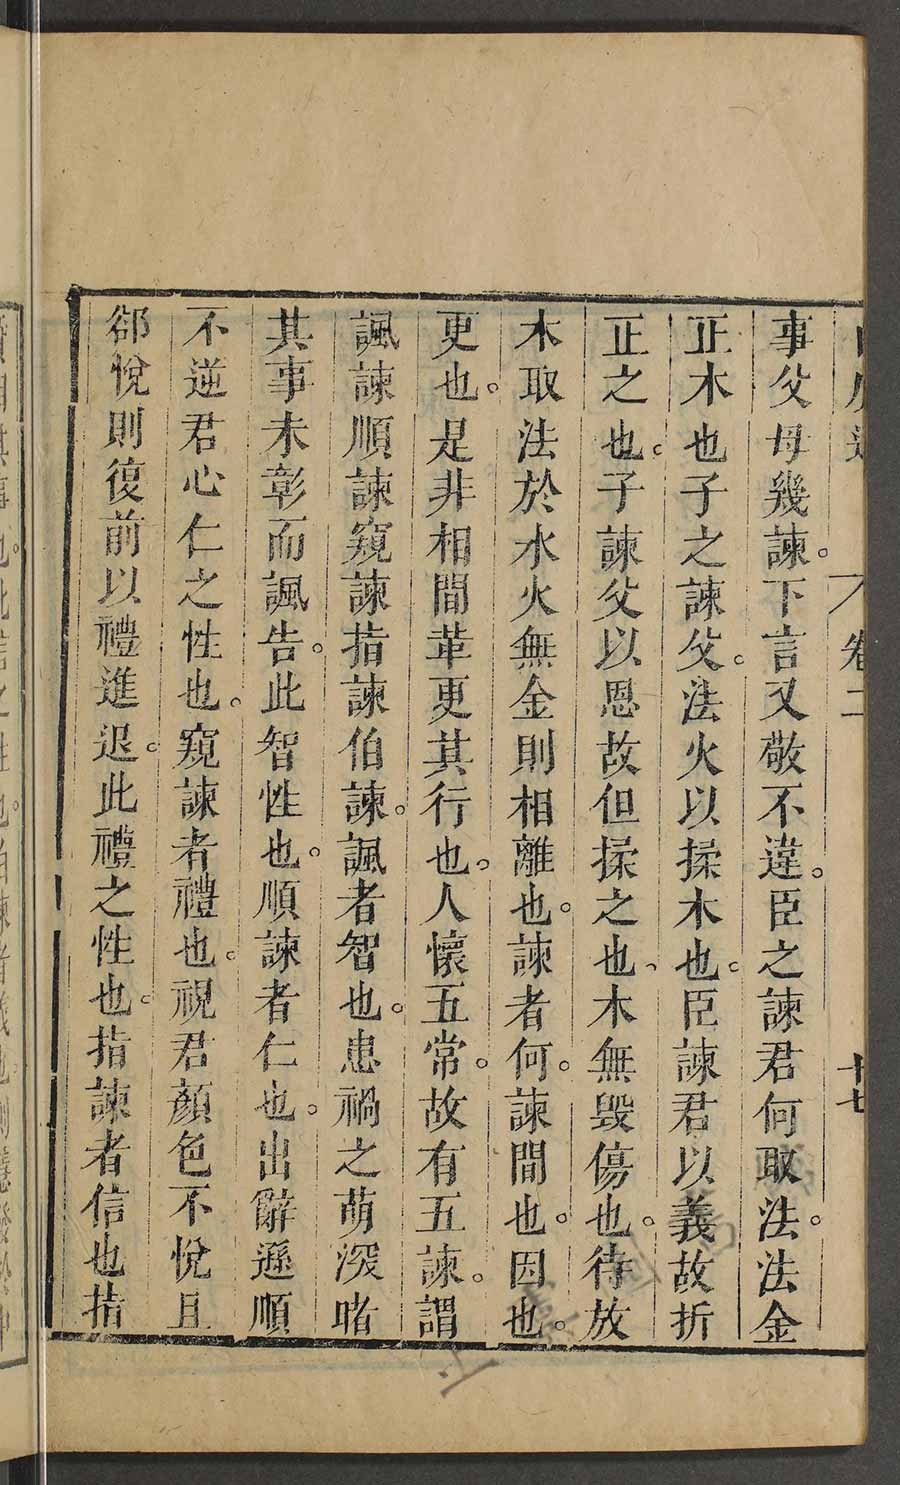 卷二
十七
事父母幾諫。下言又敬不違。臣之諫君何取法。法金
正木也子之諫父。法火以揉木也。臣諫君以義故折
正之也。子諫父以恩故但揉之也、木無毀傷也。待放
木取法於水火無金則相離也。諫者何。諫間也。因也。
更也。是非相間革更其行也。人懷五常。故有五諫。謂
諷諫順諫窺諫指諫伯諫。諷者智也。患禍之萌深睹
其事未彰而諷告。此智性也。順諫者仁也。出辭遜順
不逆君心仁之性也。窺諫者禮也。視君顏色不悅且
郤悅則復前以禮進退。此禮之性也。指諫者信也指